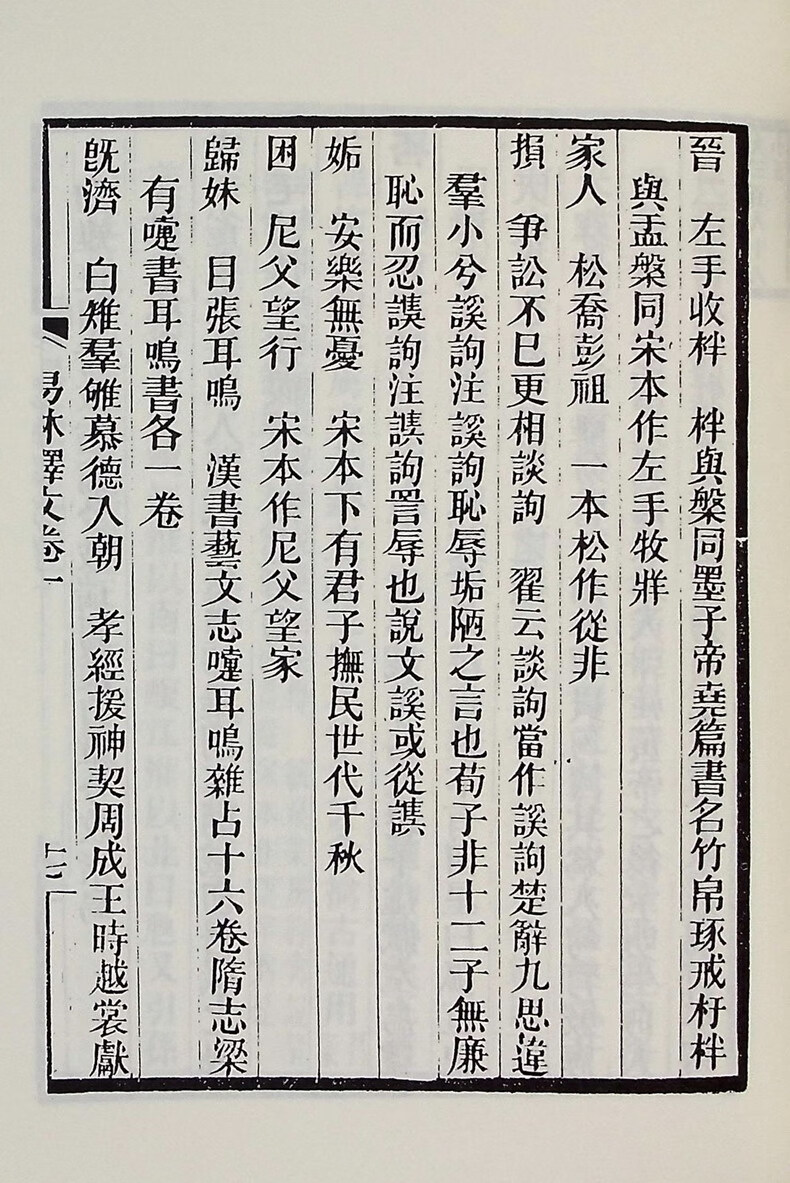 晉　左手收柈　柈與槃同墨子帝堯篇書名竹帛琢戒杅柈
與盂槃同宋本作左手牧牂
家人　松喬彭祖　一本松作從非
損　爭訟不已更相談訽　翟云談訽當作謑訽楚辭九思違
羣小兮謑訽注謑訽恥辱垢陋之言也荀子非十二子無廉
恥而忍䜁訽注䜁訽詈辱也說文謑或從䜁
姤　安樂無憂　宋本下有君子撫民世代千秋
困　尼父望行　宋本作尼父望家
歸妹　目張耳鳴　漢書藝文志嚏耳鳴雜占十六卷隋志梁
有嚏書耳鳴書各一卷
旣濟　白雉羣雊慕德入朝　孝經援神契周成王時越裳獻
易林釋文卷一　十七